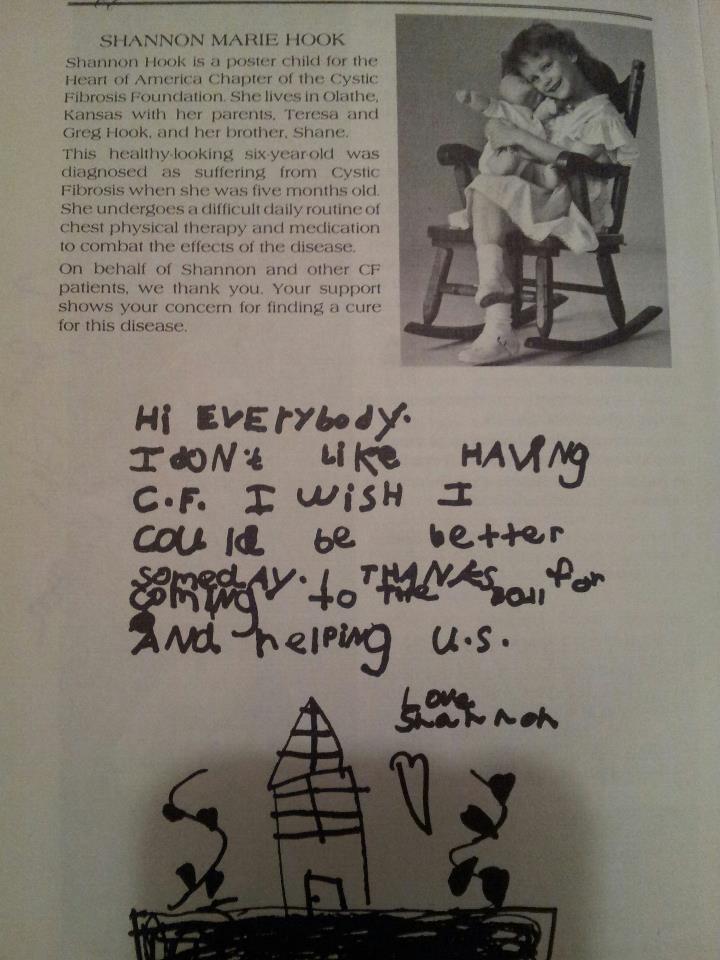 SHANNON MARIE HOOK
Shannon Hook is a poster child for the
Heart of America Chapter of the Cystic
Fibrosis Foundation. She lives in Olathe,
Kansas with her parents, Teresa and
Greg Hook, and her brother, Shane.
This healthy-looking six-year-old was
diagnosed as suffering from Cystic
Fibrosis when she was five months old.
She undergoes a difficult daily routine of
chest physical therapy and medication
to combat the effects of the disease.
On behalf of Shannon and other CF
patients, we thank you. Your support
shows your concern for finding a cure
for this disease.
Hi EVErybody.
I dON't LiKe HAViNg
C.F. I WiSH I
COULd be better
somedAY. THANKS for
coming to the Ball
ANd helping u.s.
Love
Shannon